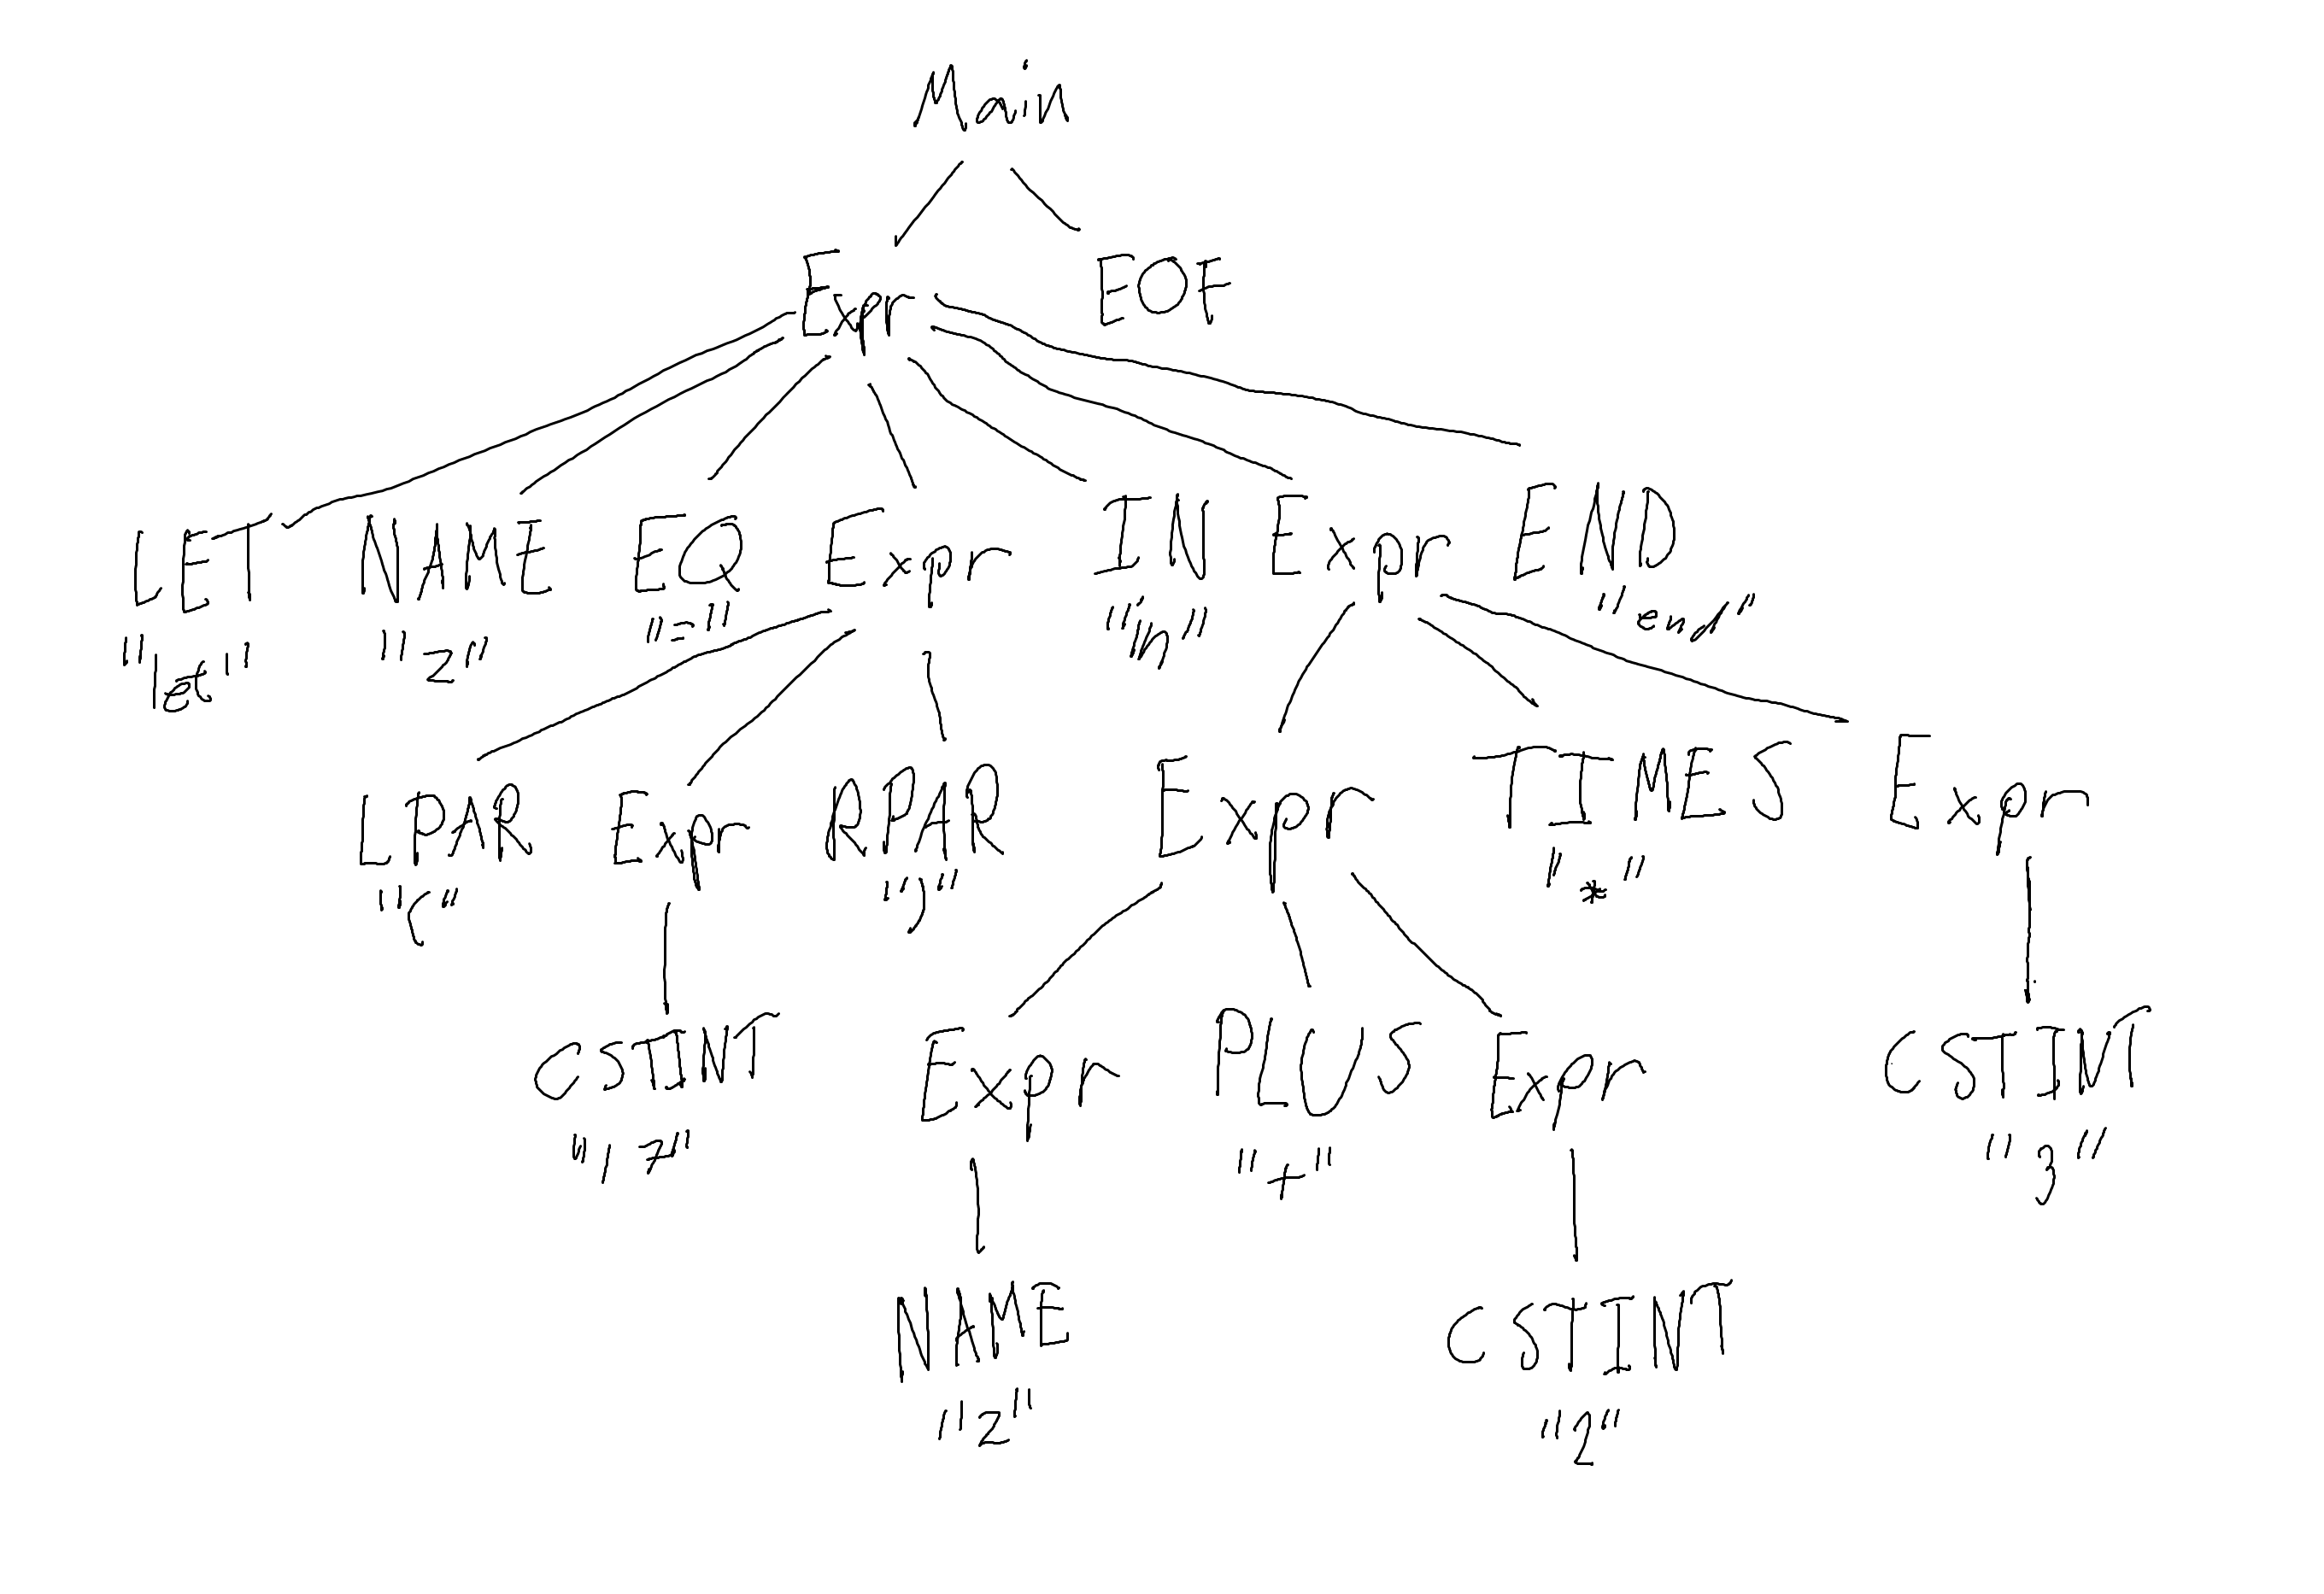 Main
Expr EOF
LET NAME EQ Expr IN Expr END
"let" "z" "=" "in" "end"
LPAR Expr RPAR Expr TIMES Expr
"(" ")" "*"
CSTINT Expr PLUS Expr CSTINT
"17" "+" "3"
NAME CSTINT
"z" "2"